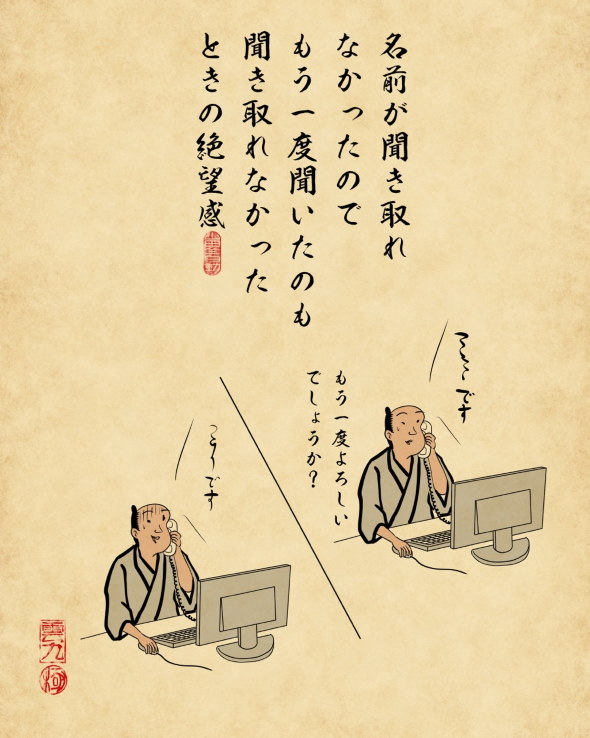 名前が聞き取れ
なかったので
もう一度聞いたのも
聞き取れなかった
ときの絶望感
です
もう一度よろしい
でしょうか？
です